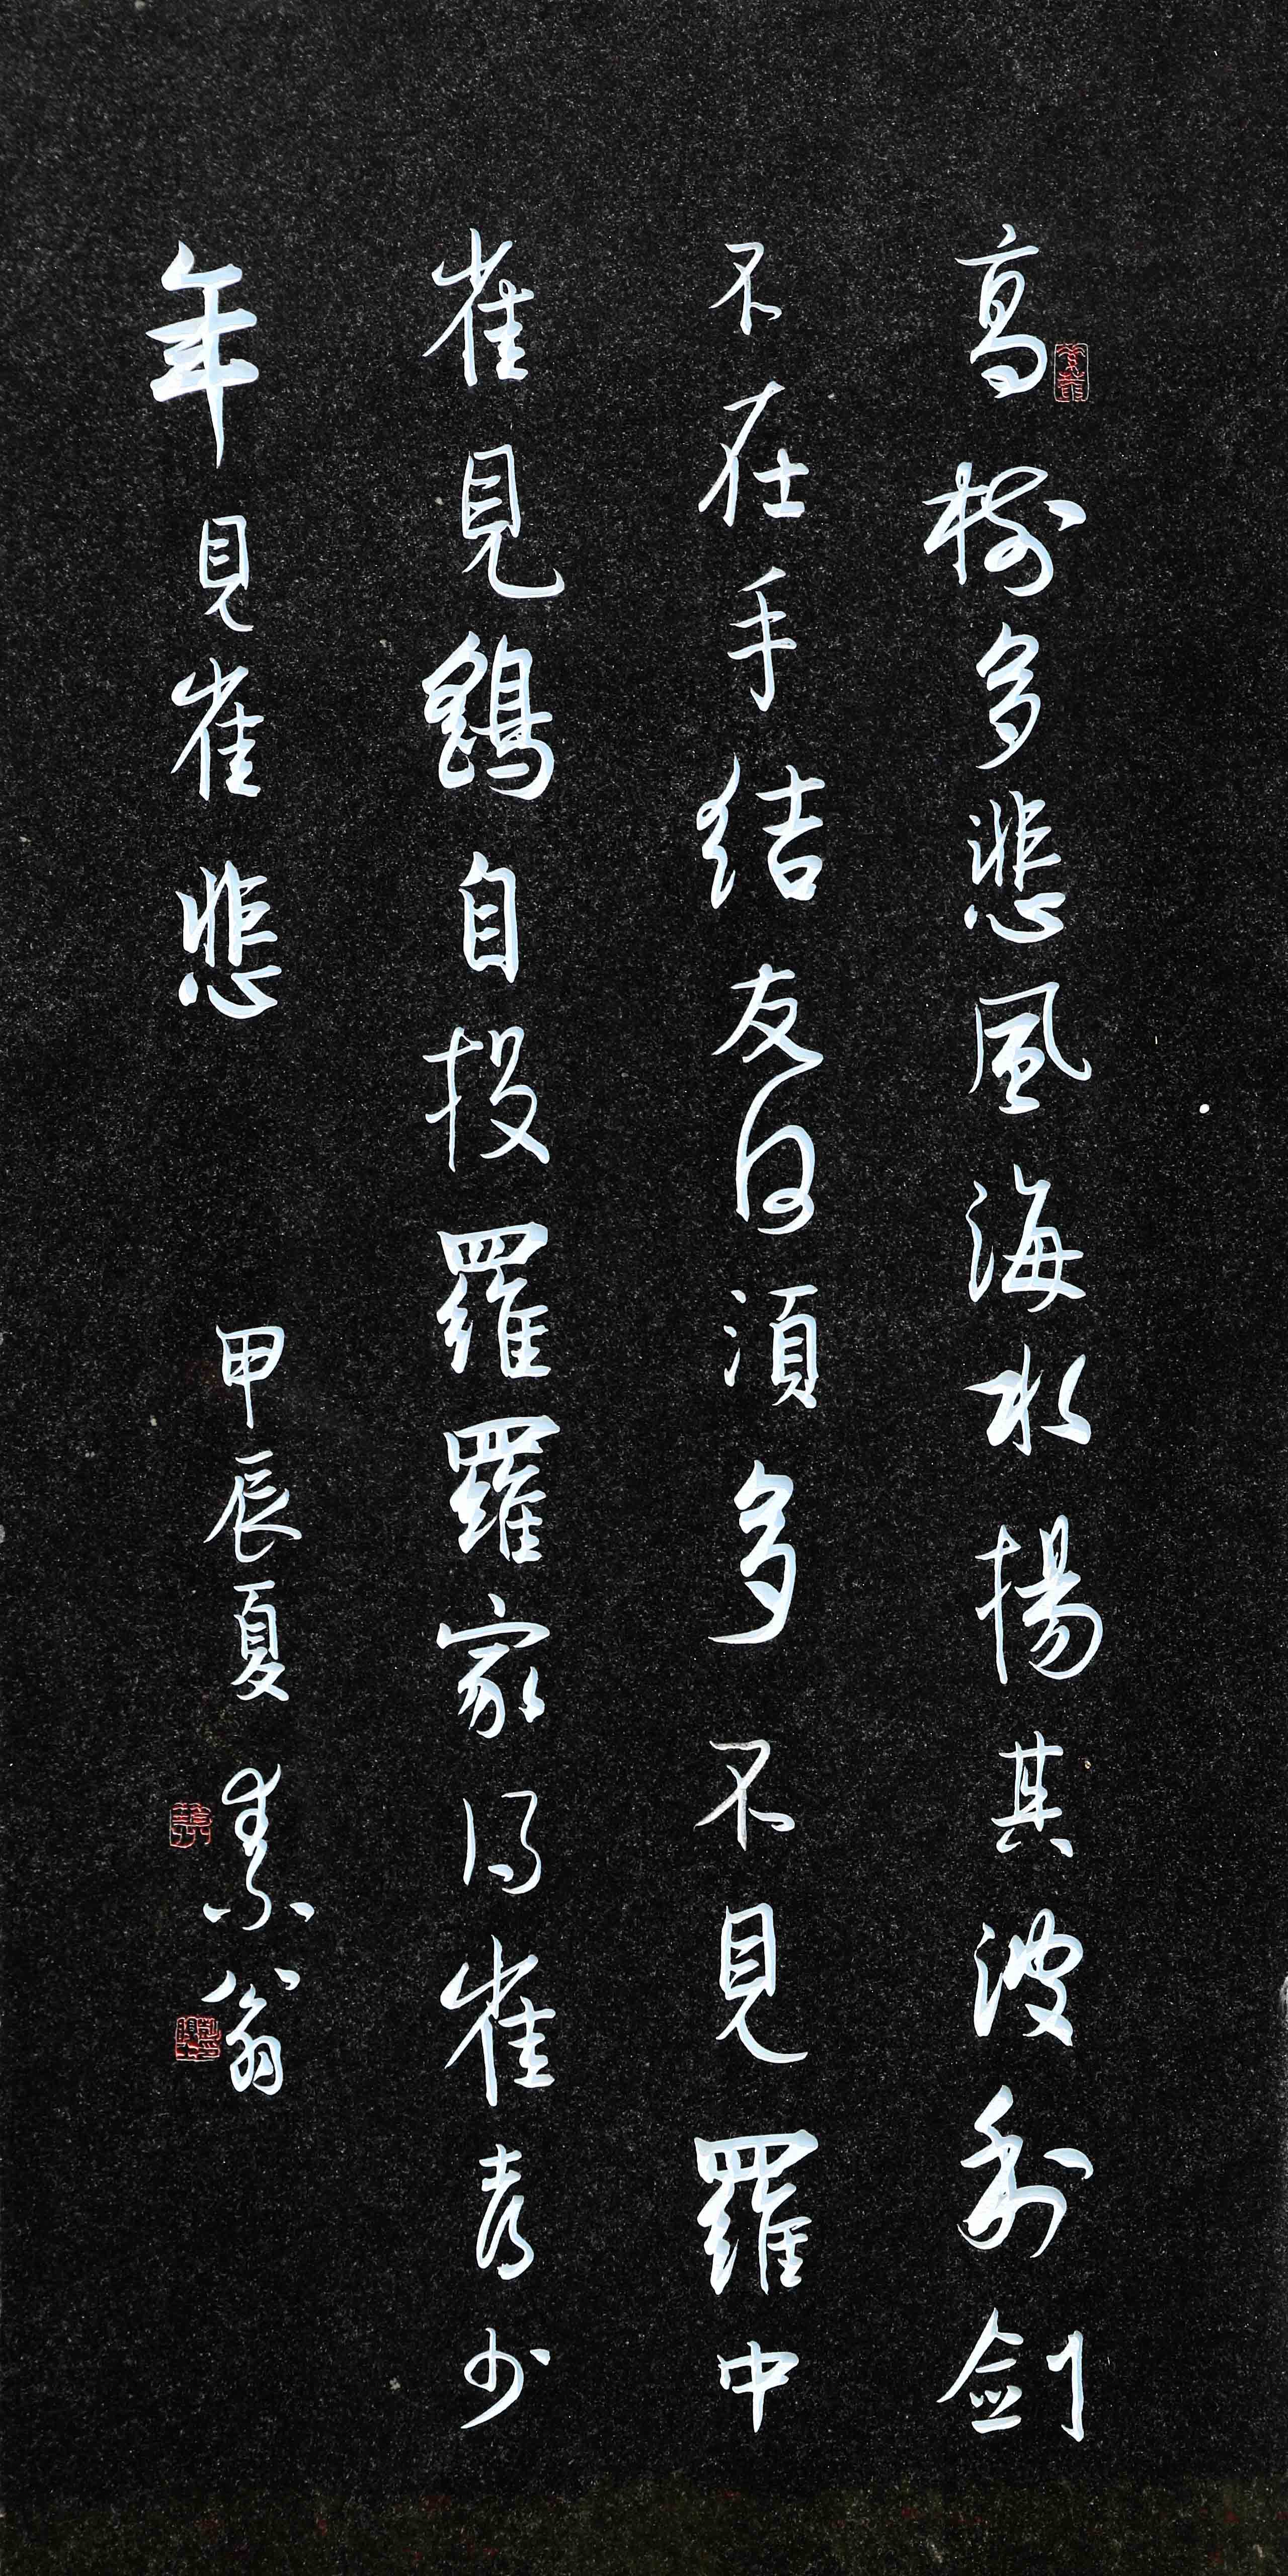 高樹多悲風海水揚其波利劍
不在手結友何須多不見羅中
雀見鷂自投羅羅家得雀喜少
年見雀悲
甲辰夏 素翁